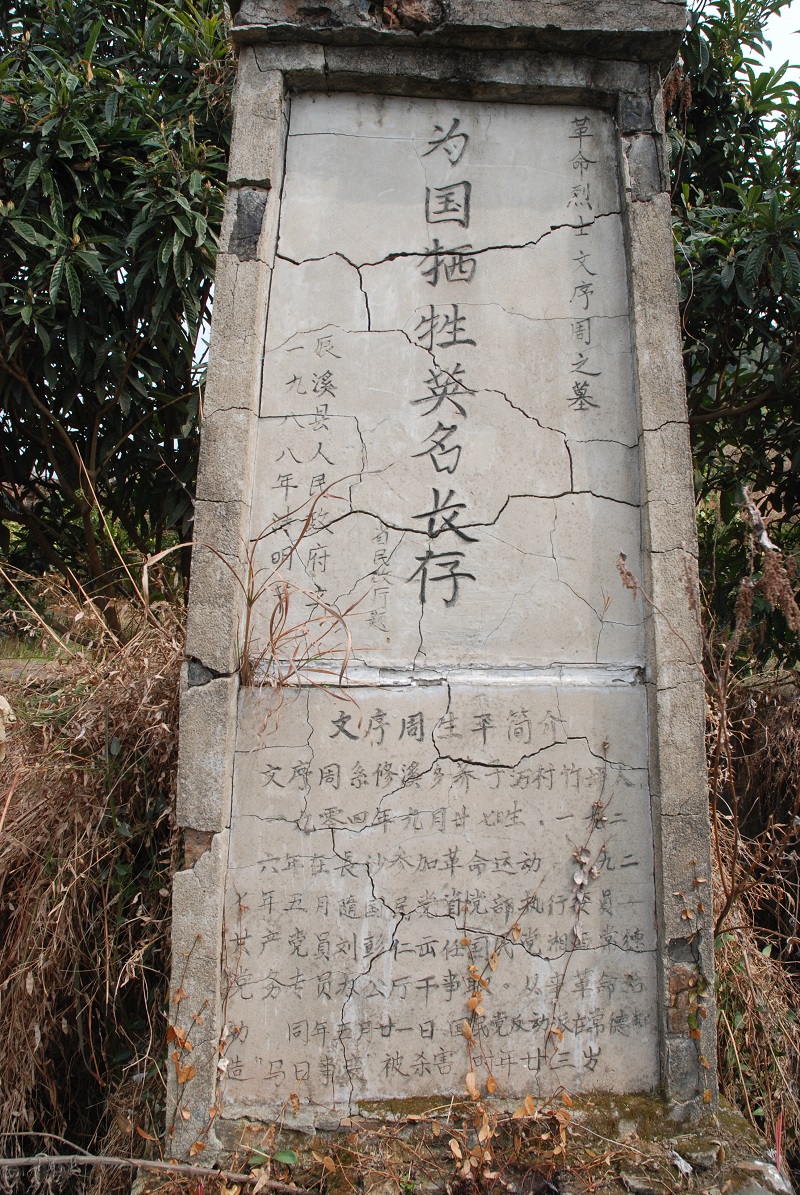 革命烈士文序周之墓
为国牺牲英名长存
省民政厅题.
辰溪县人民政府立
一九八八年清明
文序周生平简介
文序周系修溪乡乔子沥村竹 人
一九零四年九月廿七日生,一九二
六年在長沙参加革命运动 一九二
七年五月隨国民党首党部执行委員
共产党員刘彭仁 任国民党湘 常德
党务专员办公厅干事职。从事革命活
动 同年五月廿一日国民党反动派在常德 
造"马日事变"被杀害 时年廿三岁